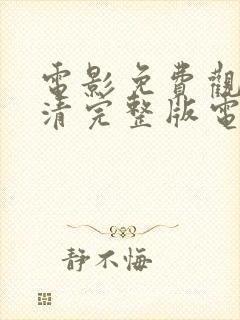 電影免費觀
清完整版電
静不悔